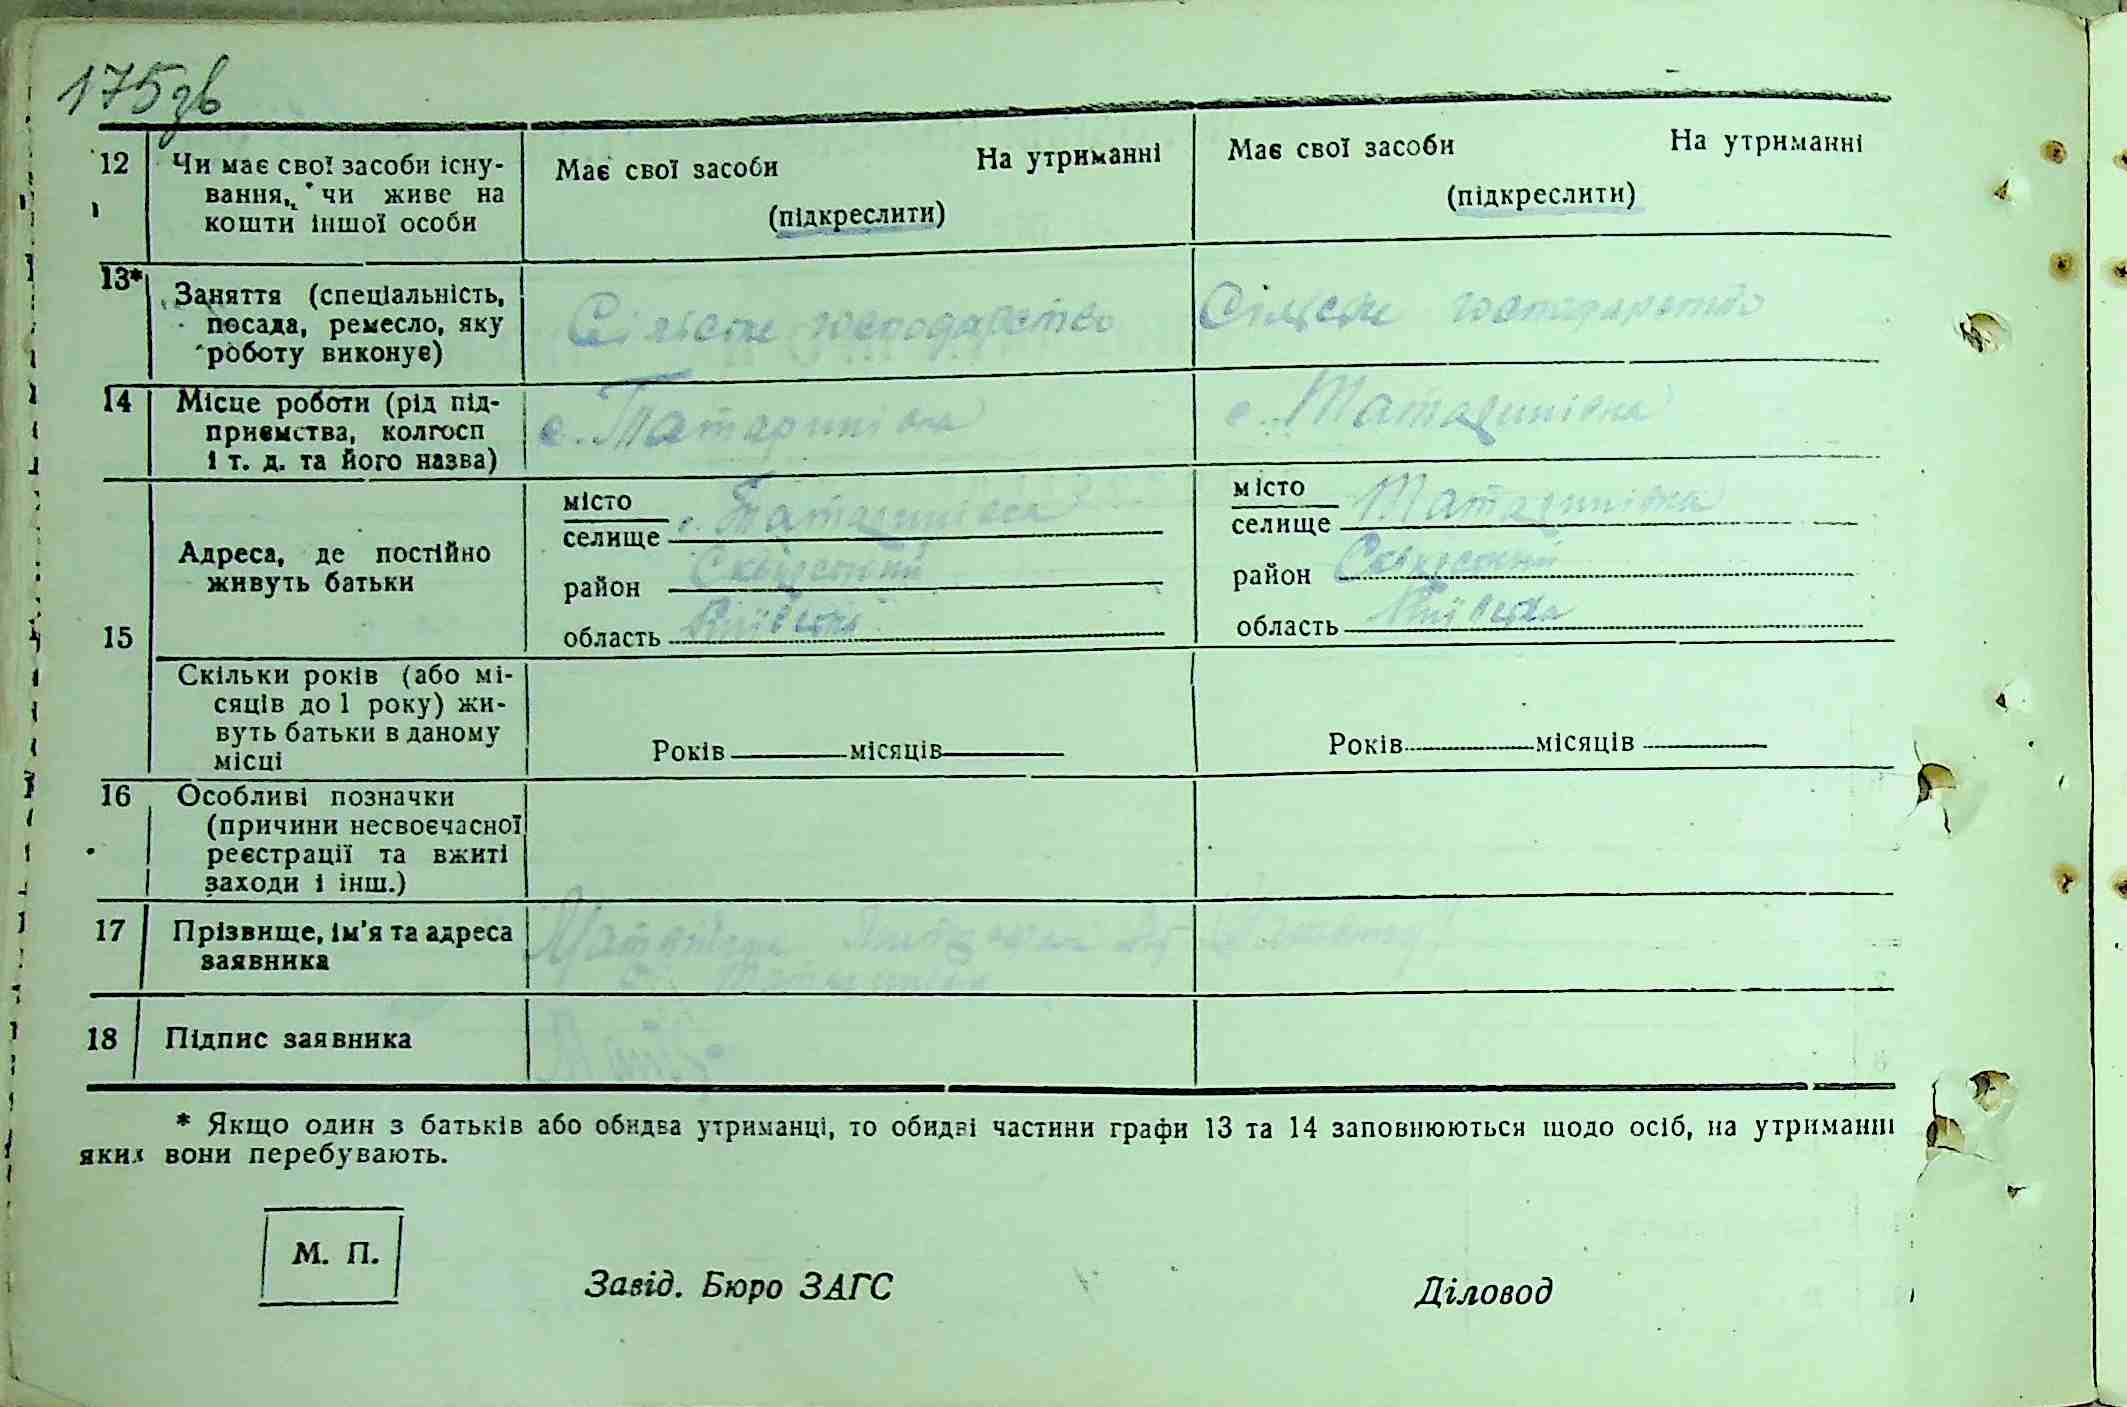 175зв
12 Чи має свої засоби існу-
вання, чи живе на
кошти іншої особи
Має свої засоби На утриманні
(підкреслити)
Має свої засоби На утриманні
(підкреслити)
13* Заняття (спеціальність,
посада, ремесло, яку
роботу виконує)
Сільське господарство
Сільське господарство
14 Місце роботи (рід під-
приємства, колгосп
і т. д. та його назва)
с. Татаринівка
с. Татаринівка
15 Адреса, де постійно
живуть батьки
місто
селище с. Татаринівка
район Сквирський
область Київська
місто
селище Татаринівка
район Сквирський
область Київська
Скільки років (або мі-
сяців до 1 року) жи-
вуть батьки в даному
місці
Років місяців
Років місяців
16 Особливі позначки
(причини несвоєчасної
реєстрації та вжиті
заходи і інш.)
17 Прізвище, ім'я та адреса
заявника
с. Татаринівка
18 Підпис заявника
* Якщо один з батьків або обидва утриманці, то обидві частини графи 13 та 14 заповнюються щодо осіб, на утриманні
яких вони перебувають.
М. П.
Завід. Бюро ЗАГС Діловод